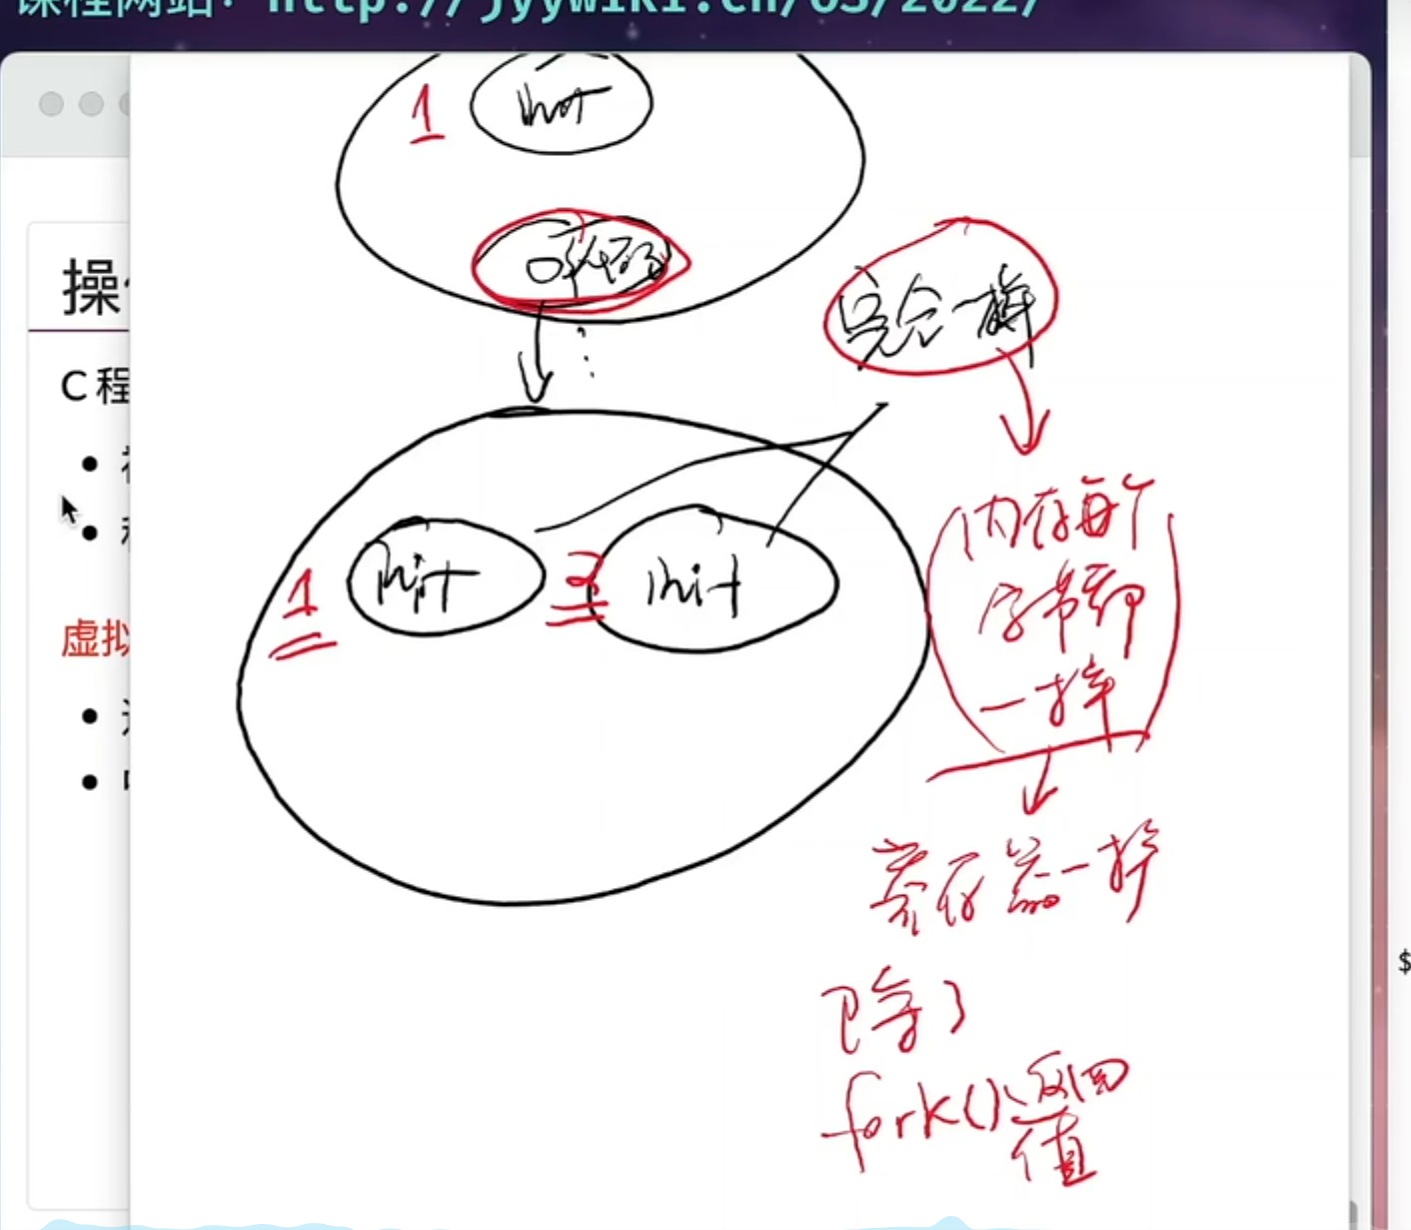 课程网站：http://jyywiki.cn/OS/2022/
操
C 程
虚拟
1
init
完全一样
1
init
init
内存每个
字节都
一样
寄存器一样
除了
fork()返回
值
$